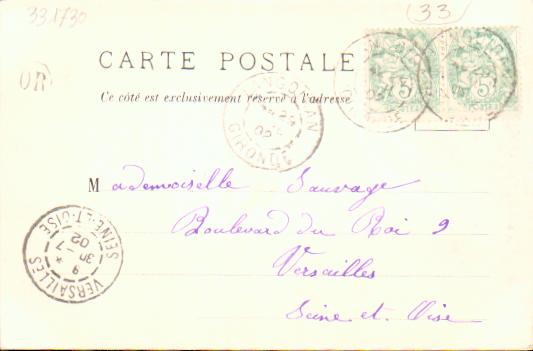 33.1730
33
CARTE POSTALE
OR
Ce côté est exclusivement réservé à l'adresse
GIRONDE
02
Mademoiselle Sauvage
Boulevard du Roi 9
Versailles
Seine et Oise
VERSAILLES
SEINE-ET-OISE
9
30 -7
02
5
5